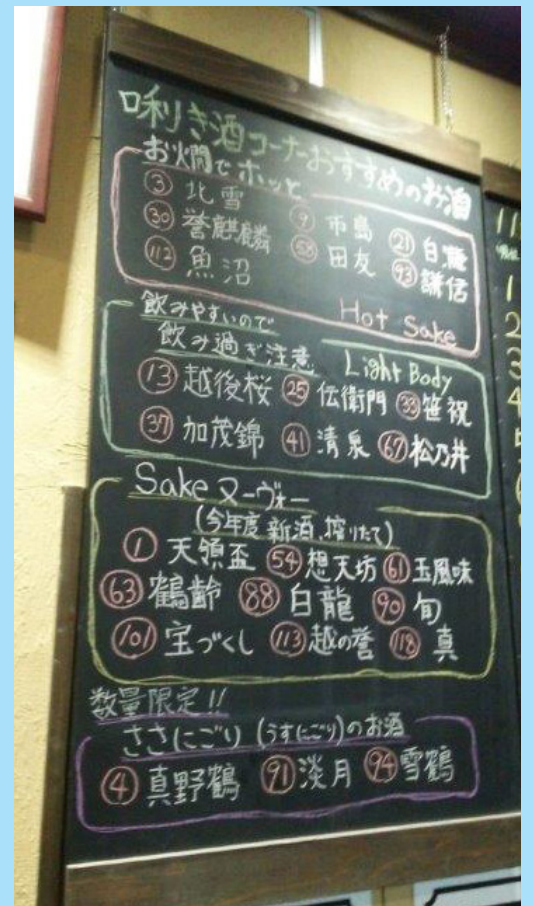 唎き酒コーナーおすすめのお酒
お燗でホッと
③ 北雪 ⑨ 市島 ㉑ 白龍
㉚ 誉麒麟 58 田友 93 謙信
112 魚沼
Hot Sake
飲みやすいので
飲み過ぎ注意 Light Body
⑬ 越後桜 ㉕ 伝衛門 ㉝ 笹祝
㊲ 加茂錦 ㊶ 清泉 67 松乃井
Sake ヌーヴォー
(今年度新酒、搾りたて)
① 天領盃 54 想天坊 61 玉風味
63 鶴齢 88 白龍 90 旬
101 宝づくし 113 越の誉 118 真
数量限定!!
ささにごり (うすにごり)のお酒
④ 真野鶴 91 淡月 94 雪鶴
11
1
2
3
4
5